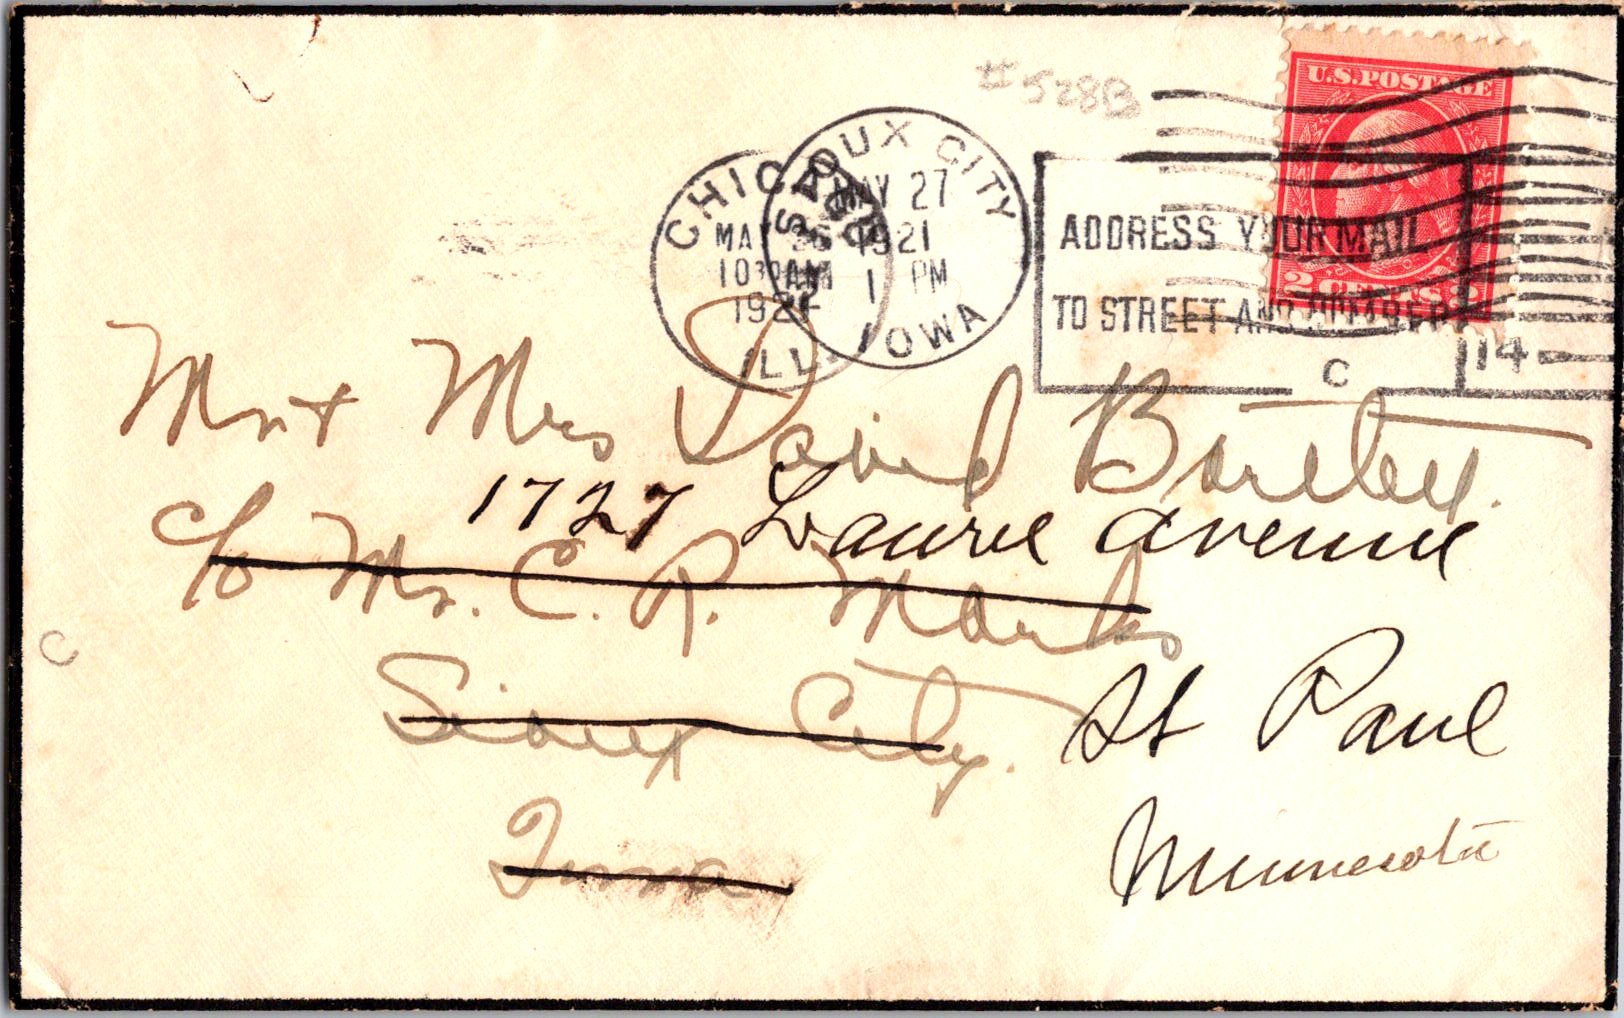 #528B
U.S. POSTAGE
2 CENTS 2
CHICAGO
MAY 26
10 30 AM
1921
ILL.
SIOUX CITY
MAY 27
1921
1 PM
IOWA
ADDRESS YOUR MAIL
TO STREET AND NUMBER
C
14
Mr & Mrs David Bartley.
1727 Laurel avenue
c/o Mr. C. R. Marks
Sioux City.
Iowa
St Paul
Minnesota
C